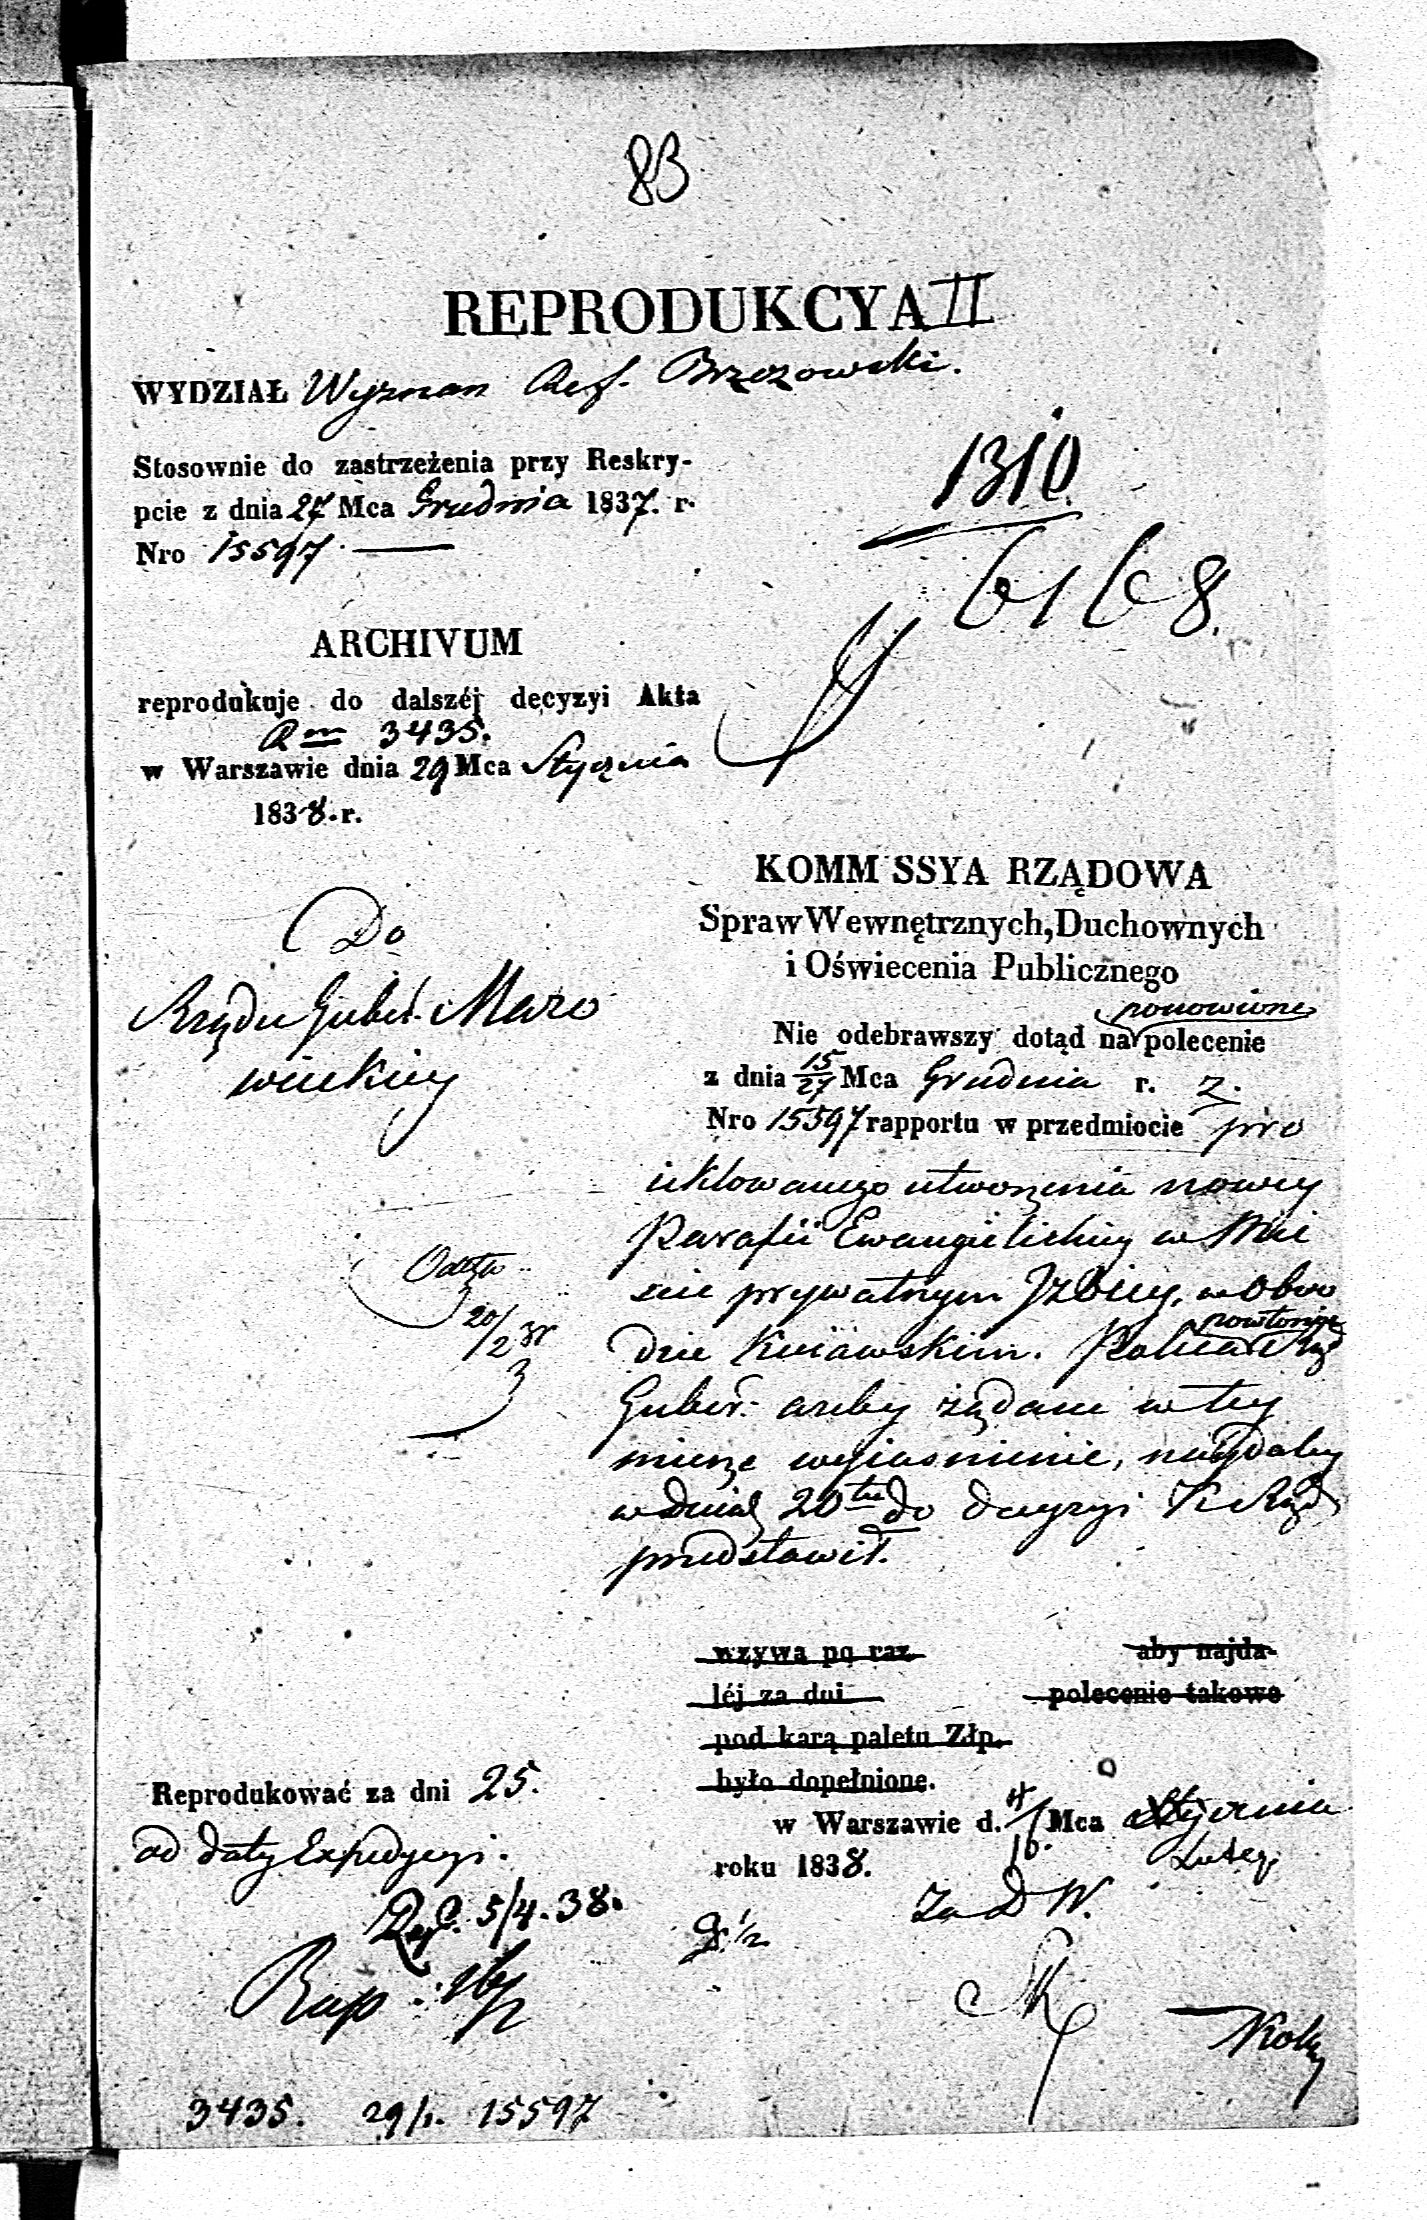 83
REPRODUKCYA II
WYDZIAŁ Wyznan Ref. Brzozowski.
Stosownie do zastrzeżenia przy Reskry-
pcie z dnia 27 Mca Grudnia 1837. r.
Nro 15597.
1310
6168.
ARCHIVUM
reprodukuje do dalszéj decyzyi Akta
3435.
w Warszawie dnia 29 Mca Stycznia
1838. r.
Do
Rządu Guber. Mazo
wieckiey
KOMM SSYA RZĄDOWA
Spraw Wewnętrznych, Duchownych
i Oświecenia Publicznego
ponowione
Nie odebrawszy dotąd na polecenie
z dnia 15/27 Mca Grudnia r. z.
Nro 15597 rapportu w przedmiocie pro
iektowanego utworzenia nowey
Parafii Ewangielickiey w Mie
scie prywatnym Izbicy, w Obwo
powtórnie
dzie Kuiawskim. Poleca Rząd
Guber. azeby żądane w tey
mierze wyiasnienie, naydaley
w dniach 20tu do decyzyi K Rząd
przedstawił.
20/2 38
wzywa po raz aby najda-
léj za dni polecenie takowe
pod karą paletu Złp.
było dopełnione.
w Warszawie d. 4/16. Mca Stycznia
Lutego
roku 1838.
Reprodukować za dni 25.
od daty Expedycyi.
Rep. 5/4. 38.
Za D W.
3435. 29/1. 15597